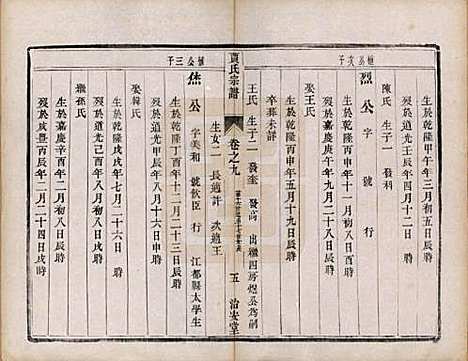 恒公次子
烈公 字 號 行
生於乾隆甲午年三月初五日辰時
歿於道光壬辰年二月二十四日 時
陳氏 生子一 發科
生於乾隆丙申年十一月初一日辰時
歿於 年 月 日 時
娶王氏
生於乾隆丙申年五月十九日辰時
卒葬未詳
王氏 生子二 發奎 發高 出繼四房煜公為嗣
賈氏宗譜
卷之九
五 治安堂
生女二 長適許 次適王
恒公三子
公 字美和 號欽臣 行 江都縣太學生
生於乾隆丁酉年十二月二十三日辰時
歿於道光 年八月十六日辰時
娶韓氏
生於乾隆戊戌年七月二十六日 時
歿於道光己酉年八月初六日 時
繼孫氏
生於嘉慶辛酉年二月初八日辰時
歿於咸豐丙辰年二月二十四日 時